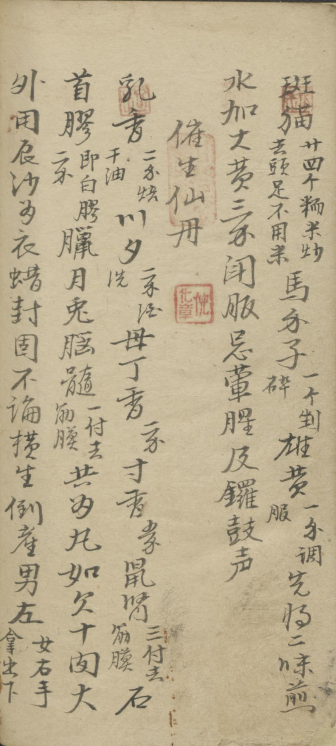 斑猫廿四个糯米炒去頭足不用米馬分子一个剉碎雄黄一分調服先將二味煎
水加大黄三分閉服忌葷腥及鑼鼓声
催生仙丹
乳香二分烘干油川夕一分洗母丁香一分寸香鼠腎三付去筋膜石
首膠即白膠二分臘月兔腦髓一付去筋膜共为丸如欠十肉大
外用辰沙为衣蜡封固不論横生倒產男左女右手拿出下